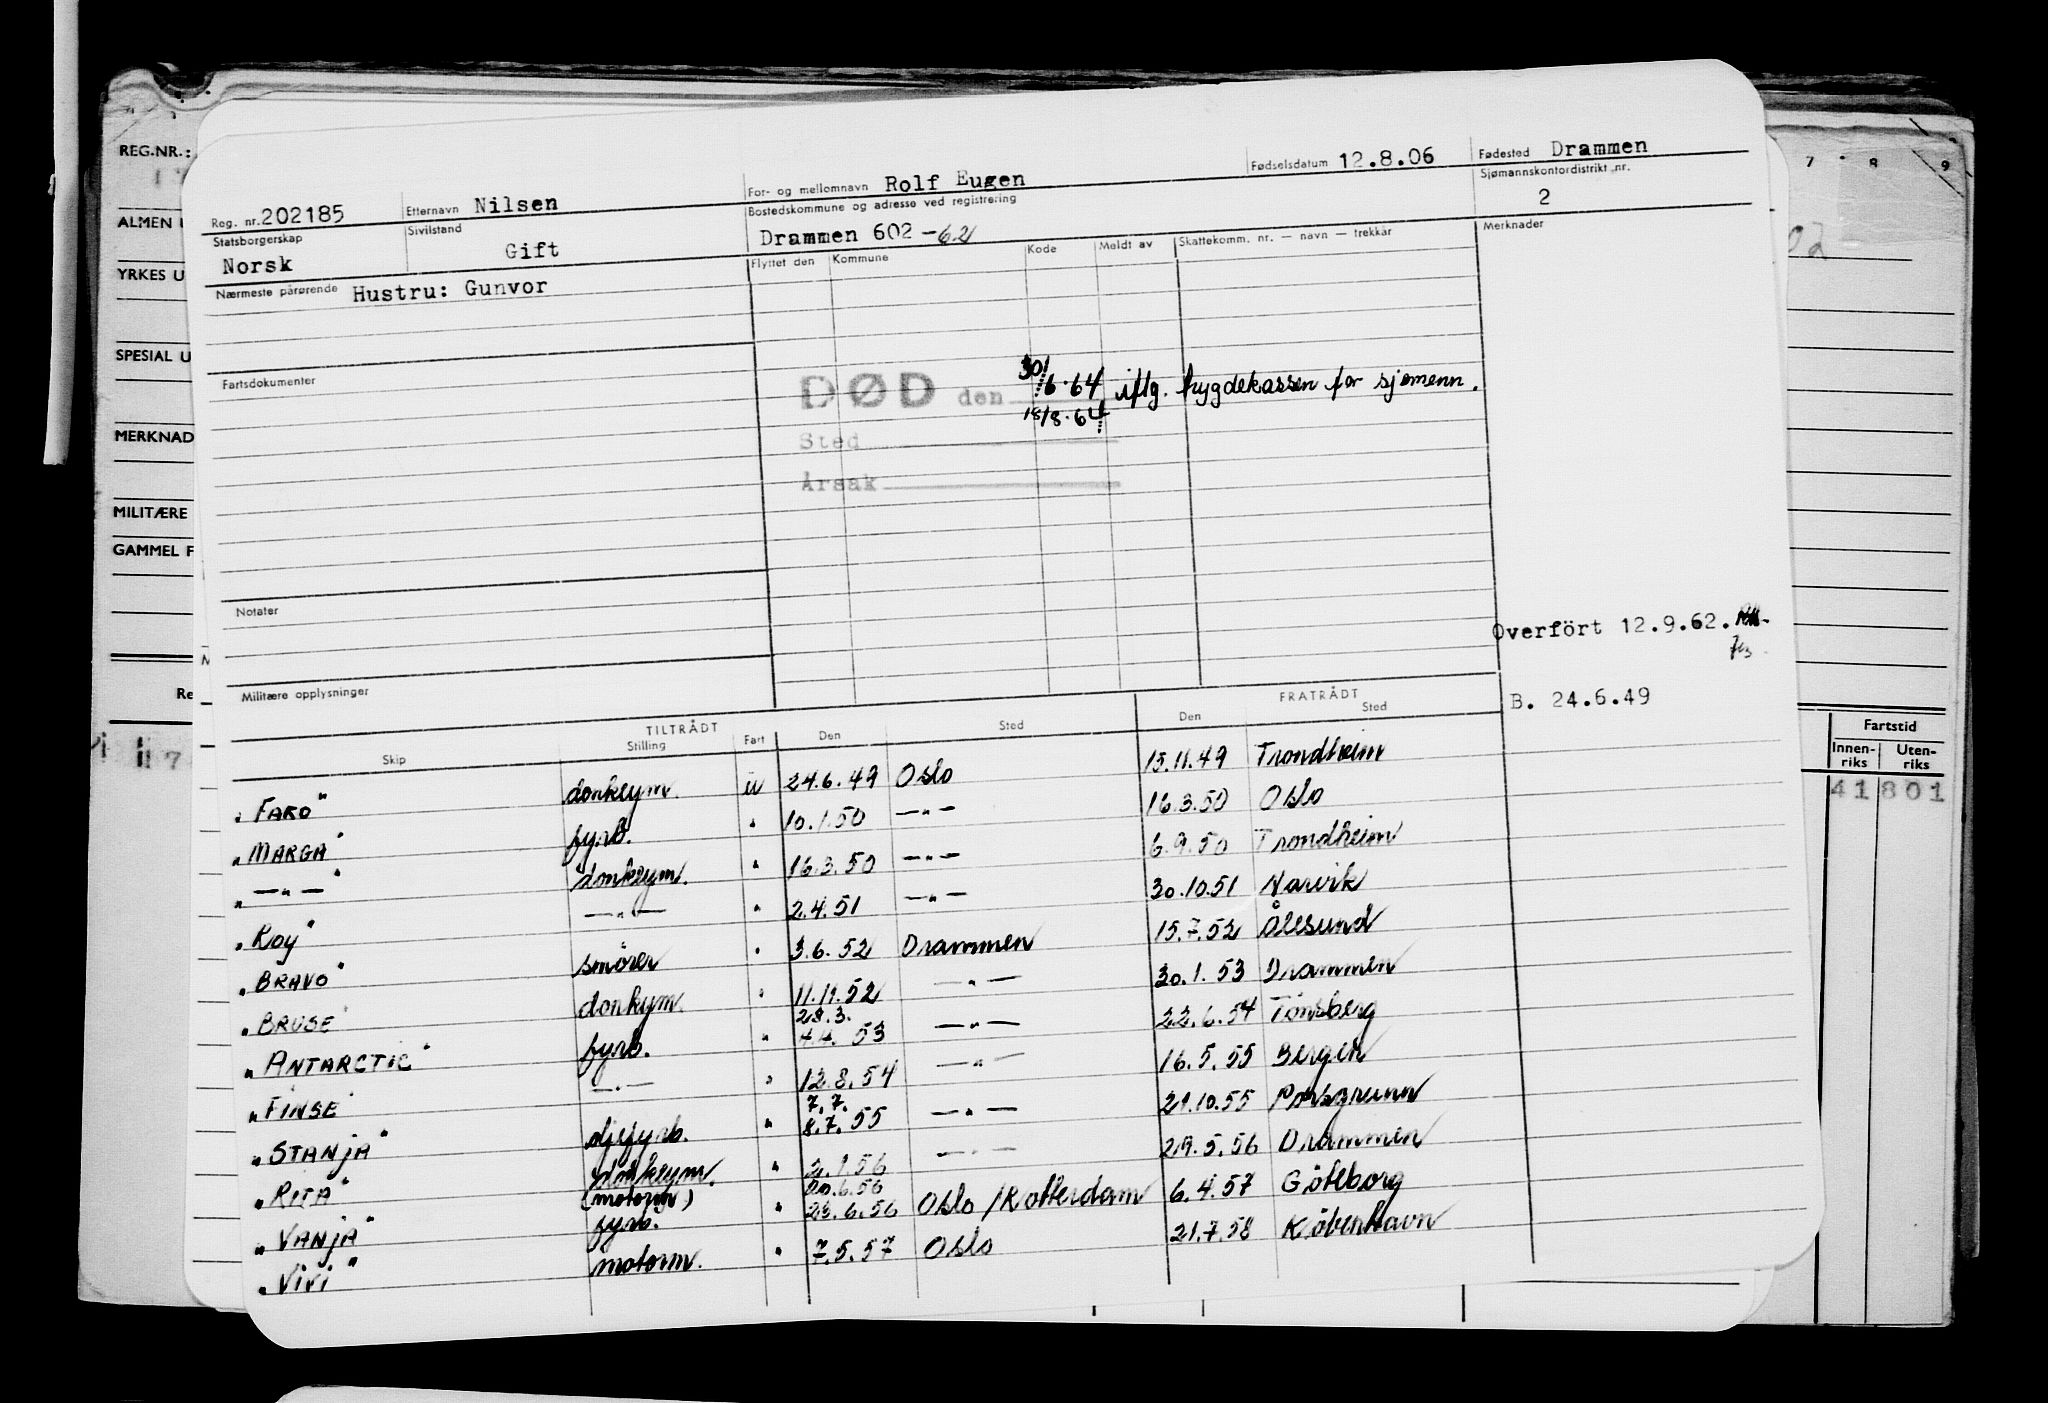 REG.NR.:
ALMEN U
YRKES U
SPESIAL U
MERKNAD
MILITÆRE
GAMMEL F
Re
7 8 9
02
Fartstid
Innen-riks Uten-riks
41801
Reg. nr. 202185 Etternavn Nilsen For- og mellomnavn Rolf Eugen Fødselsdatum 12.8.06 Fødested Drammen
Statsborgerskap Norsk Sivilstand Gift Bostedskommune og adresse ved registrering Drammen 602 -62 Sjømannskontordistrikt nr. 2
Nærmeste pårørende Hustru: Gunvor Flyttet den Kommune Kode Meldt av Skattekomm. nr. — navn — trekkår Merknader
Fartsdokumenter
DØD den 30/6.64 iflg. trygdekassen for sjømenn.
18/8.64
Sted
Årsak
Notater
Overført 12.9.62.
Militære opplysninger
B. 24.6.49
TILTRÅDT FRATRÅDT
Skip Stilling Fart Den Sted Den Sted
"FARO" donkeym. u 24.6.49 Oslo 15.11.49 Trondheim
"MARGA" fyrb. " 10.1.50 —"— 16.3.50 Oslo
"—"—" donkeym. " 16.3.50 —"— 6.9.50 Trondheim
"Roy" —"— " 2.4.51 —"— 30.10.51 Narvik
"BRAVO" smörer " 3.6.52 Drammen 15.7.52 Ålesund
"BRUSE" donkym. " 11.11.52 —"— 30.1.53 Drammen
"ANTARCTIC" fyrb. " 28.3. 4.4. 53 —"— 22.6.54 Tönsberg
"FINSE" —"— " 12.8.54 —"— 16.5.55 Bergen
"STANJA" djfyrb. " 7.7. 8.7.55 —"— 29.10.55 Porsgrunn
"RITA" donkeym. (motorm) " 2.1.56 —"— 29.5.56 Drammen
"VANJA" fyrb. " 20.6.56 23.6.56 Oslo/Rotterdam 6.4.57 Göteborg
"VIVI" motorm. " 7.5.57 Oslo 21.7.58 Köbenhavn